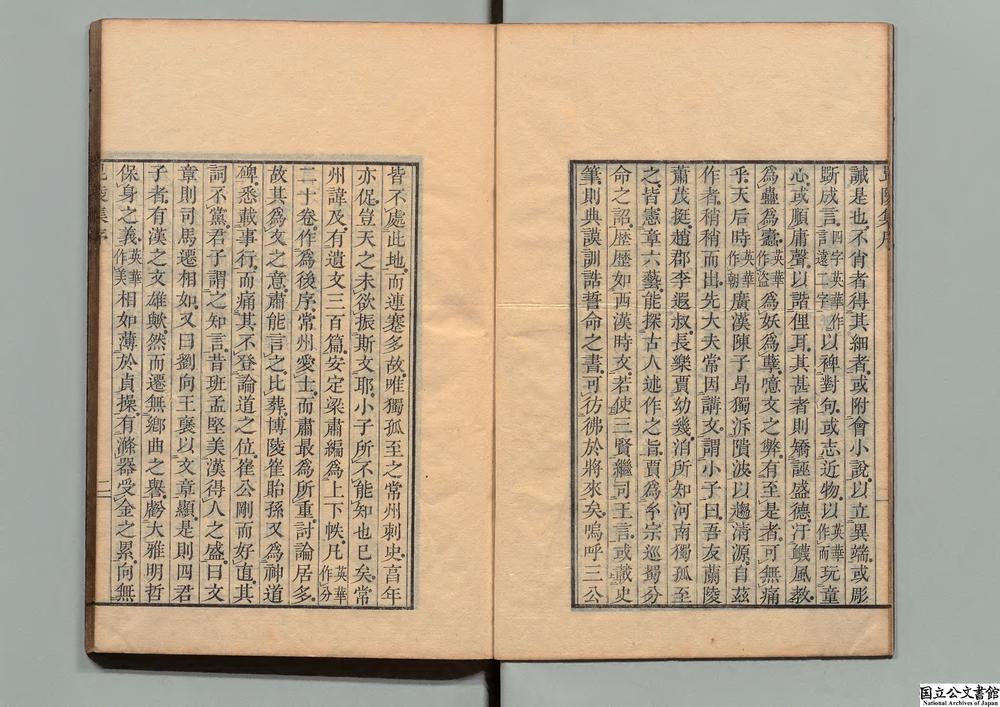 誠是也不肯者得其細者或附會小說以立異端或彫
斲成言四字英華作言遠二字以裨對句或志近物以英華作而玩童
心或順庸聲以諧俚耳其甚者則矯誣盛德汙衊風教
為蠱為蠹英華作盜為妖為孽噫文之弊有至是者可無痛
乎天后時英華作朝廣漢陳子昂獨泝隤波以趨清源自茲
作者稍稍而出先大夫常因講文謂小子曰吾友蘭陵
蕭茂挺趙郡李遐叔長樂賈幼幾洎所知河南獨孤至
之皆憲章六藝能探古人述作之旨賈為玄宗巡蜀分
命之詔歷歷如西漢時文若使三賢繼司王言或載史
筆則典謨訓誥誓命之書可彷彿於將來矣嗚呼三公
皆不處此地而連蹇多故唯獨孤至之常州刺史享年
亦促豈天之未欲振斯文耶小子所不能知也已矣常
州諱及有遺文三百篇安定梁肅編為上下帙凡英華作分
二十卷作為後序常州愛士而肅最為所重討論居多
故其為文之意肅能言之比葬博陵崔貽孫又為神道
碑悉載事行而痛其不登論道之位崔公剛而好直其
詞不黨君子謂之知言昔班孟堅美漢得人之盛曰文
章則司馬遷相如又曰劉向王襃以文章顯是則四君
子者有漢之文雄歟然而遷無鄉曲之譽虧大雅明哲
保身之義英華作美相如薄於貞操有滌器受金之累向無
毘陵集序
二
国立公文書館
National Archives of Japan